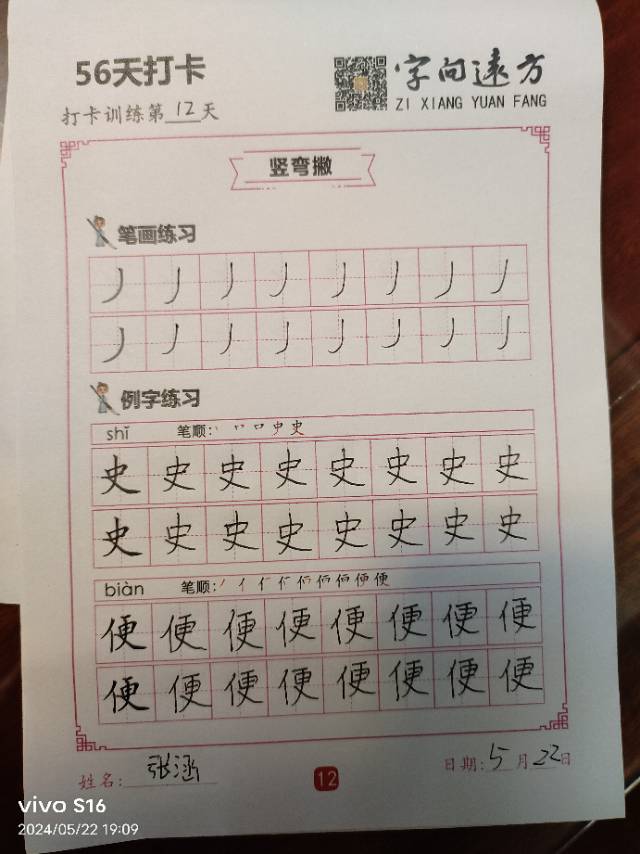 56天打卡
字向远方
打卡训练第12天
ZI XIANG YUAN FANG
竖弯撇
笔画练习
丿 丿 丿 丿 丿 丿 丿 丿
丿 丿 丿 丿 丿 丿 丿 丿
例字练习
shǐ 笔顺:
史 史 史 史 史 史 史 史
史 史 史 史 史 史 史 史
biàn 笔顺:
便 便 便 便 便 便 便 便
便 便 便 便 便 便 便 便
姓名: 张涵
12
日期: 5月22日
vivo S16
2024/05/22 19:09